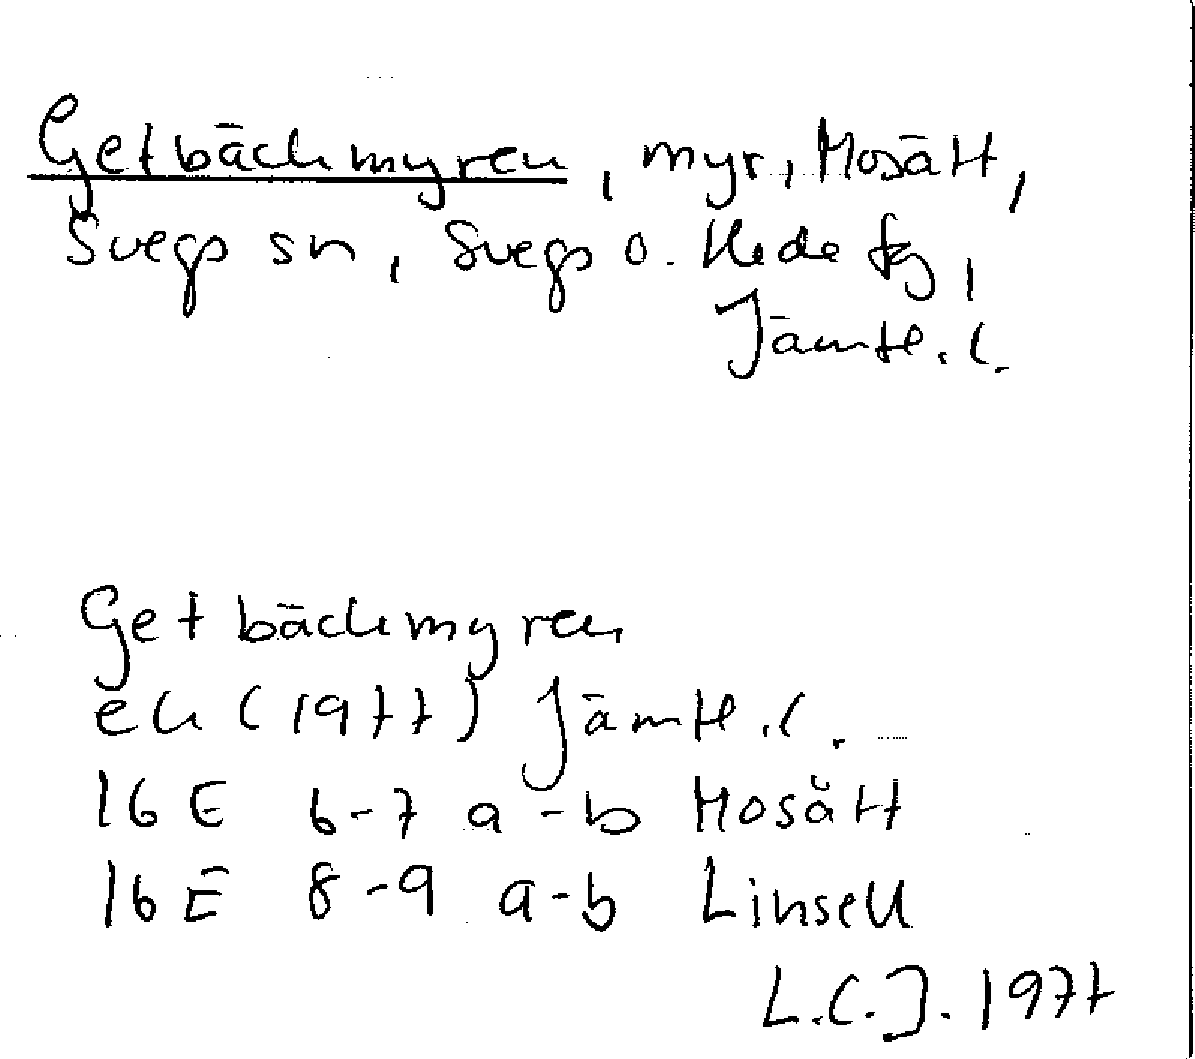 Getbäckmyren, myr, Mosätt,
Svegs sn, Svegs o. Hede tg,
Jämtl. l.
Getbäckmyren
ek (1977) Jämtl. l.
16 E 6-7 a-b Mosätt
16 E 8-9 a-b Linsell
L.C.J. 1977